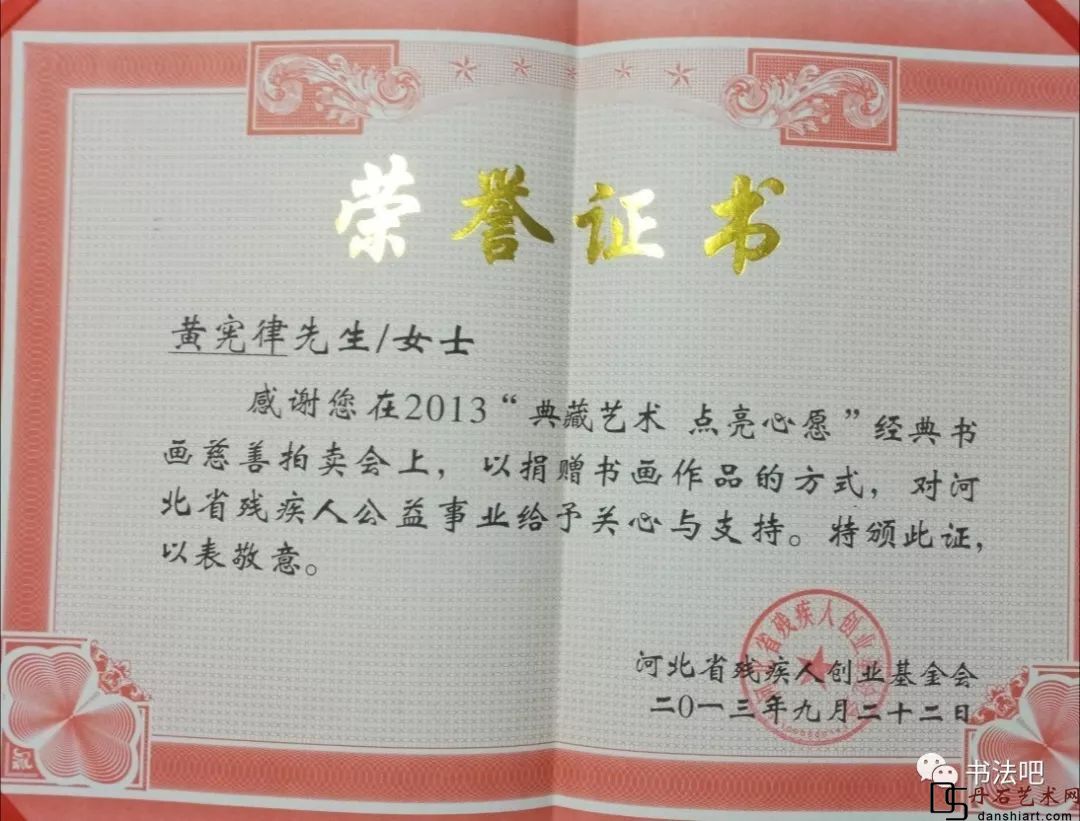 荣誉证书
黄宪律先生/女士
感谢您在2013“典藏艺术 点亮心愿”经典书
画慈善拍卖会上，以捐赠书画作品的方式，对河
北省残疾人公益事业给予关心与支持。特颁此证，
以表敬意。
河北省残疾人创业基金会
二〇一三年九月二十二日
书法吧
丹石艺术网
danshiart.com